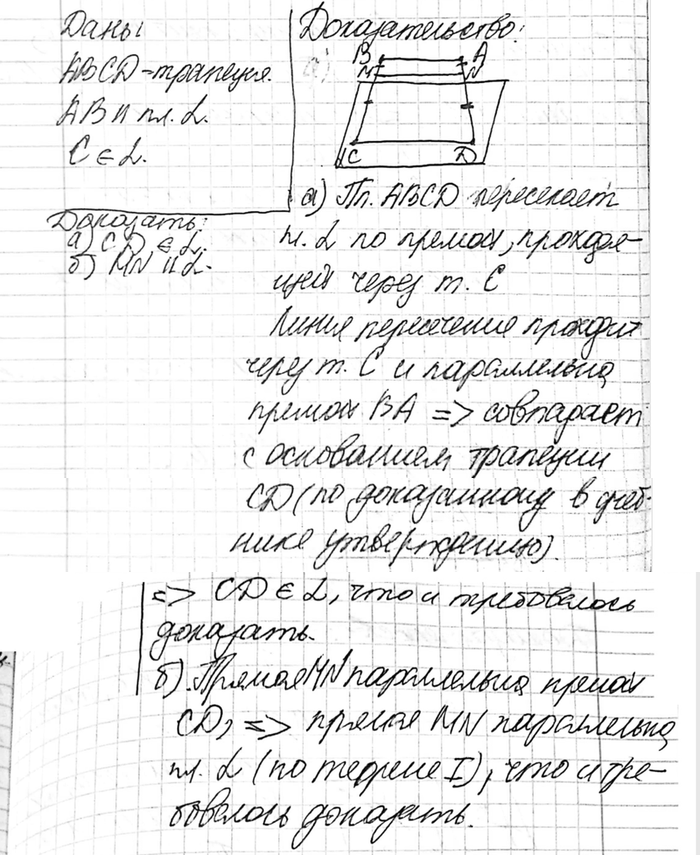 Дань:
ABCD – трапеция.
AB ∥ пл. α.
C ∈ α.
Доказать:
а) CD ∈ α.
б) MN ∥ α.
Доказательство:
а)
B A
M N
C D
а) Пл. ABCD пересекает
пл. α по прямой, проходя-
щей через т. C
Линия пересечения проходит
через т. C и параллельна
прямой BA => совпадает
с основанием трапеции
CD (по доказанному в учеб-
нике утверждению).
=> CD ∈ α, что и требовалось
доказать.
б) Прямая MN параллельна прямой
CD, => прямая MN параллельна
пл. α (по теореме I), что и тре-
бовалось доказать.